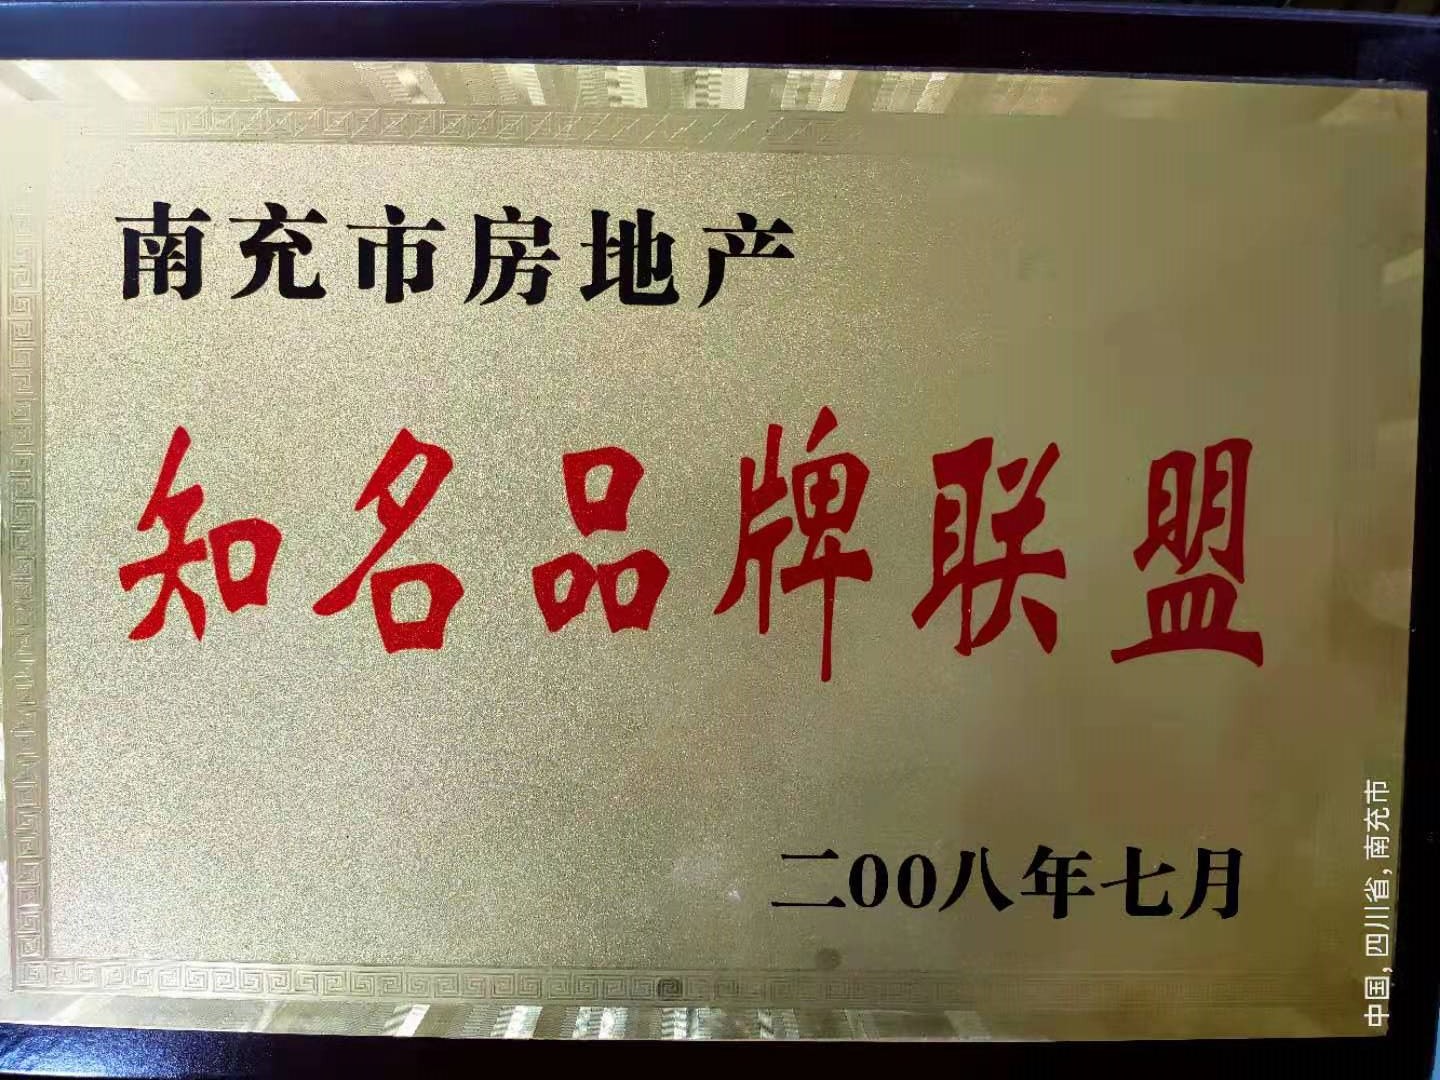 南充市房地产
知名品牌联盟
二00八年七月
中国, 四川省, 南充市